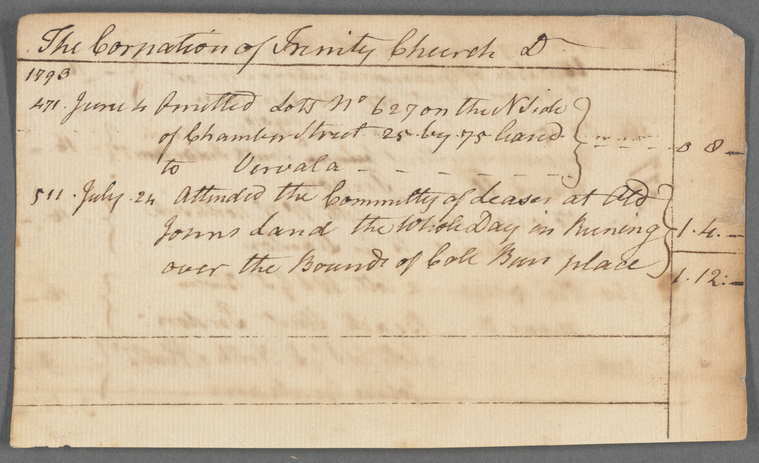 The Corpation of Trinity Church Dr
1793
471. June 4 Omitted Lots No 627 on the N Side
of Chamber Street 25 by 75 Leased
to Vervala - - - - - - 0 8 -
511. July 24 Attended the Committy of Leases at Old
Johns Land the Whole Day in Runing 1. 4. -
over the Bounds of Coll Burr place 1. 12: -